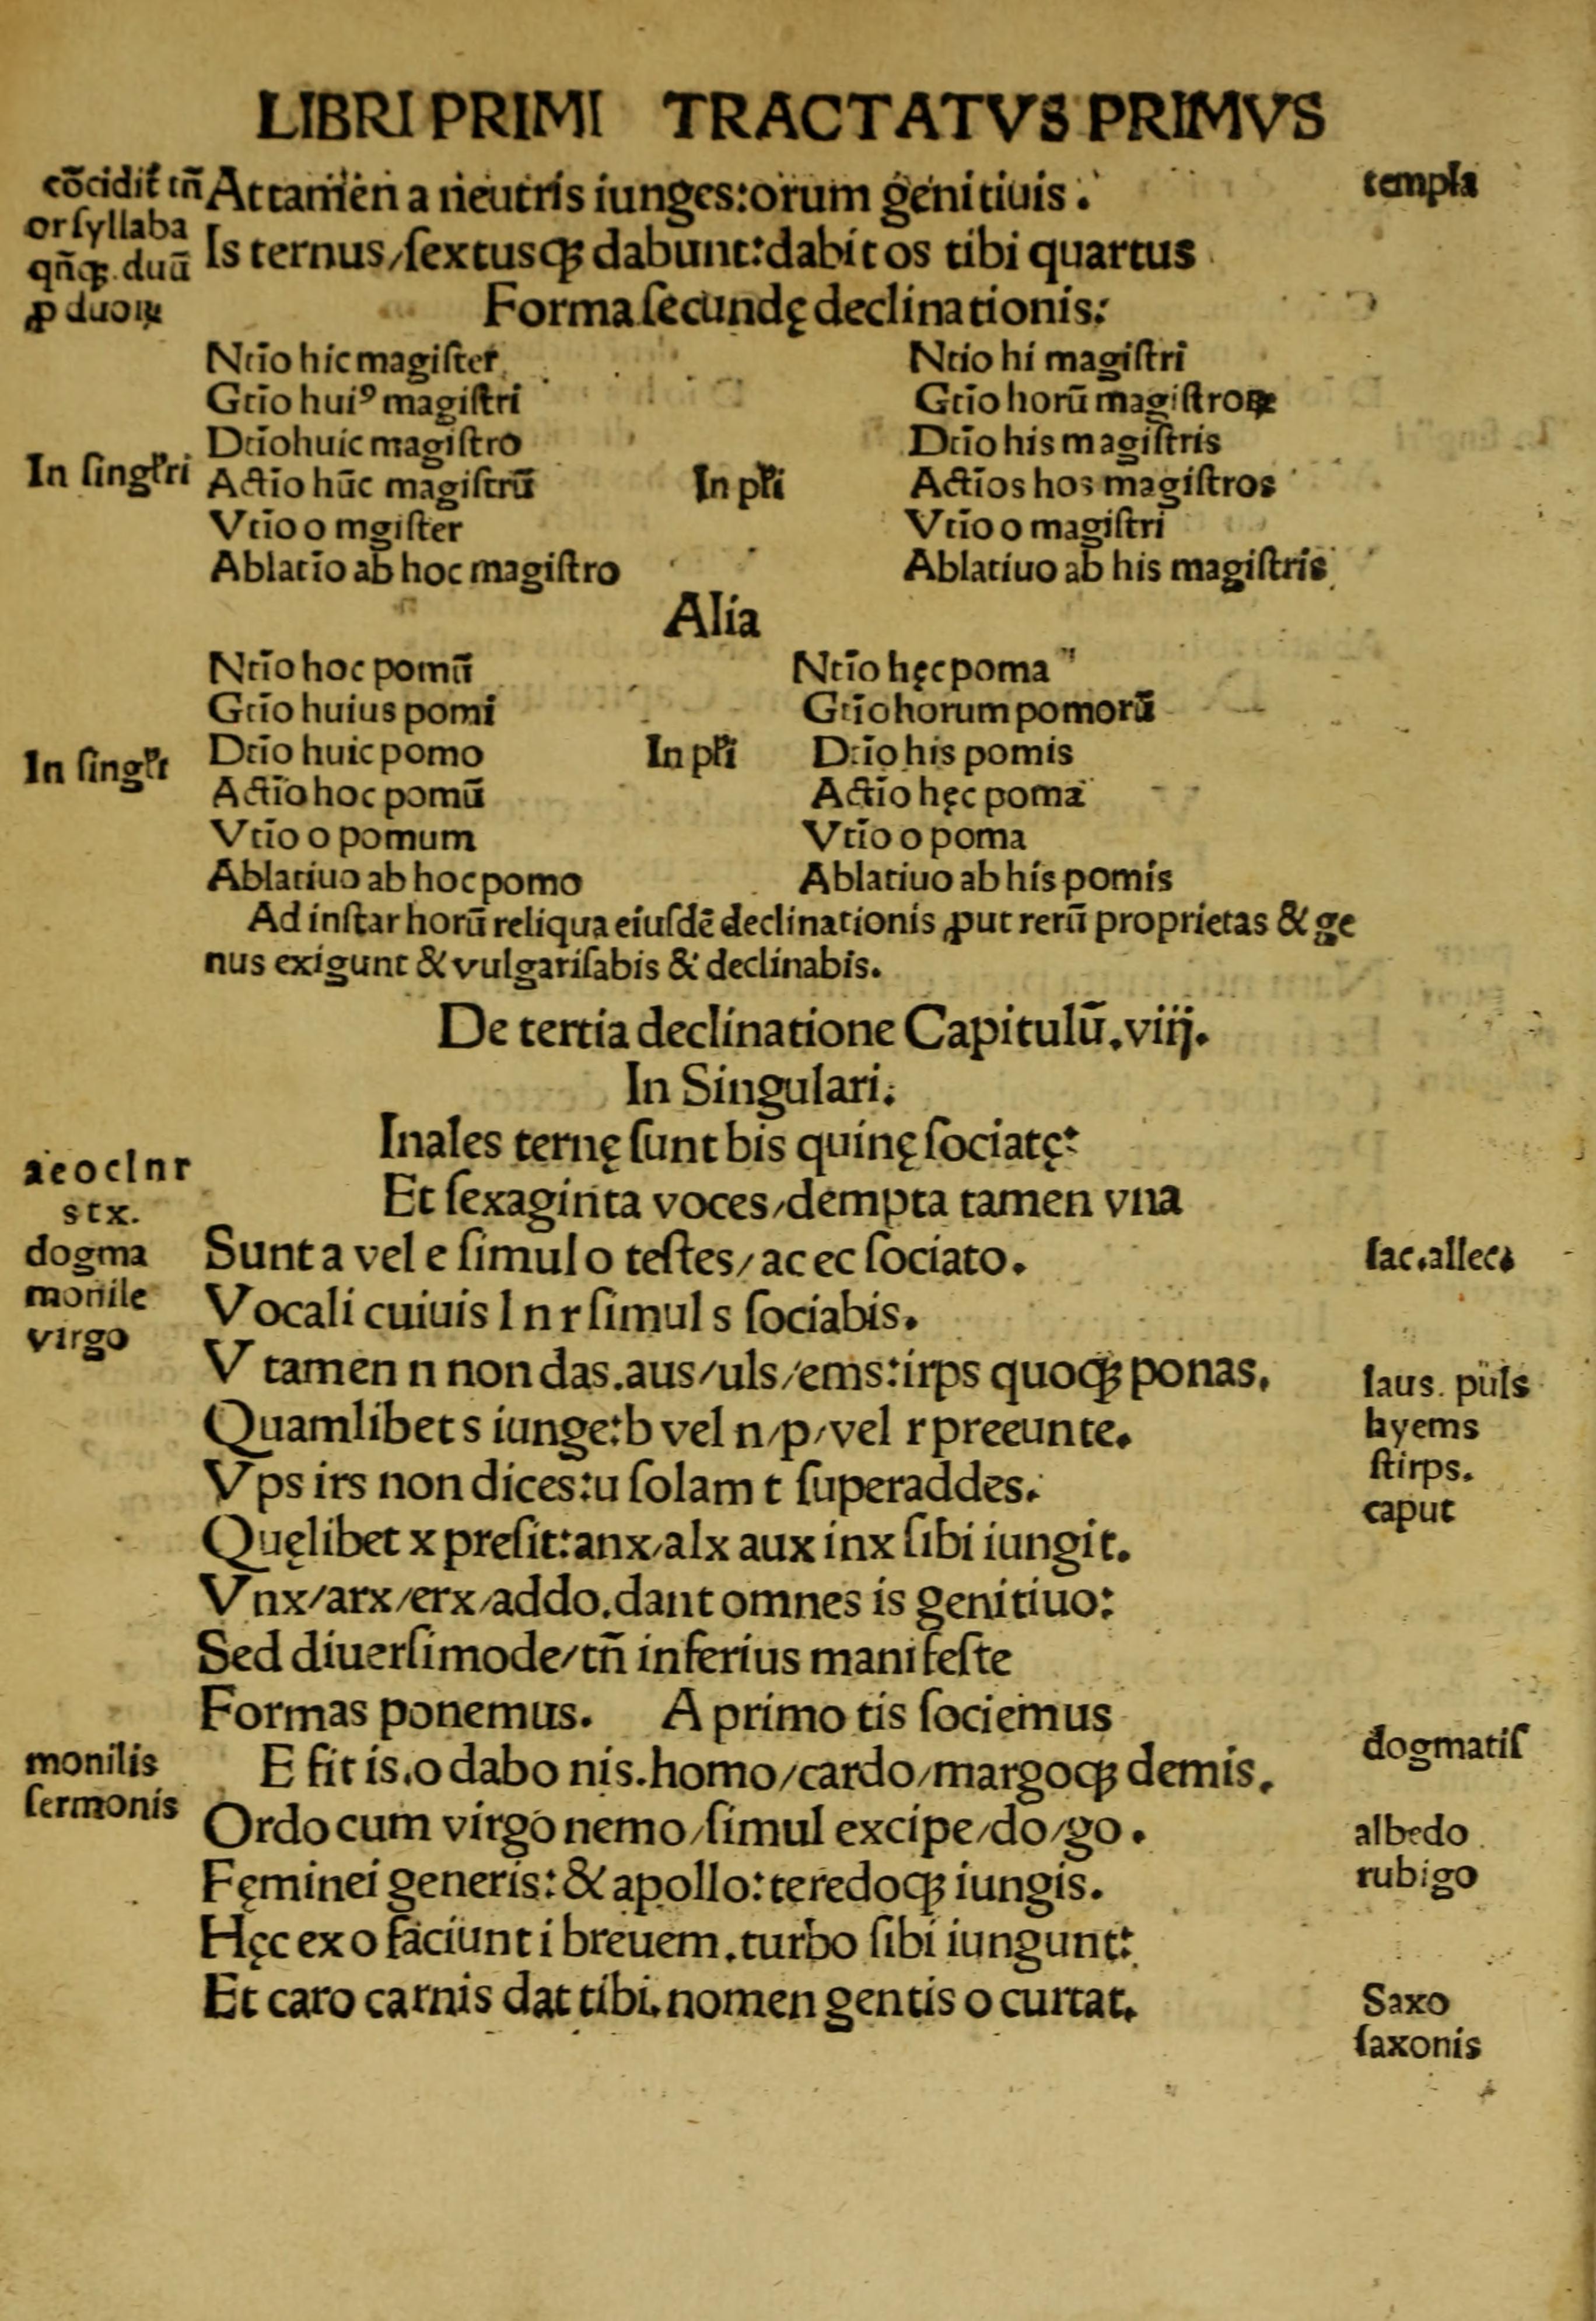 LIBRI PRIMI TRACTATVS PRIMVS
cōcidit̃ tñ
orſyllaba
qñqꝫ. duū
ꝓ duoꝝ
Attamen a neutris iunges:orum genitiuis.
templa
Is ternus/ſextusqꝫ dabunt:dabit os tibi quartus
Forma ſecundę declinationis:
In ſingl'ri
Ntīo hic magiſter
Gtīo huiꝰ magiſtri
Dtīo huic magiſtro
Actīo hūc magiſtrū
Vtīo o mgiſter
Ablatīo ab hoc magiſtro
In pl'i
Ntio hi magiſtri
Gtīo horū magiſtroꝝ
Dtīo his magiſtris
Actīos hos magiſtros
Vtīo o magiſtri
Ablatiuo ab his magiſtris
Alia
In ſingl'r
Ntīo hoc pomū
Gtīo huius pomi
Dtīo huic pomo
Actīo hoc pomū
Vtīo o pomum
Ablatiuo ab hoc pomo
In pl'i
Ntīo hęc poma
Gtīo horum pomorū
Dtīo his pomis
Actīo hęc poma
Vtīo o poma
Ablatiuo ab his pomis
Ad inſtar horū reliqua eiuſdē declinationis ꝓut rerū proprietas & ge
nus exigunt & vulgariſabis & declinabis.
De tertia declinatione Capitulū.viij.
In Singulari.
Inales ternę ſunt bis quinę ſociatę:
a e o c l n r
s t x.
Et ſexaginta voces/dempta tamen vna
dogma
monile
virgo
Sunt a vel e ſimul o teſtes/ac ec ſociato.
lac.allec.
Vocali cuiuis l n r ſimul s ſociabis.
V tamen n non das.aus/uls/ems:irps quoqꝫ ponas.
laus. puls
hyems
ſtirps.
caput
Quamlibet s iunge:b vel n/p/vel r preeunte.
Vps irs non dices:u ſolam t ſuperaddes.
Quęlibet x preſit:anx/alx aux inx ſibi iungit.
Vnx/arx/erx/addo.dant omnes is genitiuo:
Sed diuerſimode/tñ inferius manifeſte
Formas ponemus. A primo tis ſociemus
dogmatiſ
monilis
ſermonis
E fit is.o dabo nis.homo/cardo/margoqꝫ demis.
Ordo cum virgo nemo/ſimul excipe/do/go.
albedo
rubigo
Fęminei generis:& apollo:teredoqꝫ iungis.
Hęc ex o faciunt i breuem.turbo ſibi iungunt:
Et caro carnis dat tibi.nomen gentis o curtat.
Saxo
ſaxonis